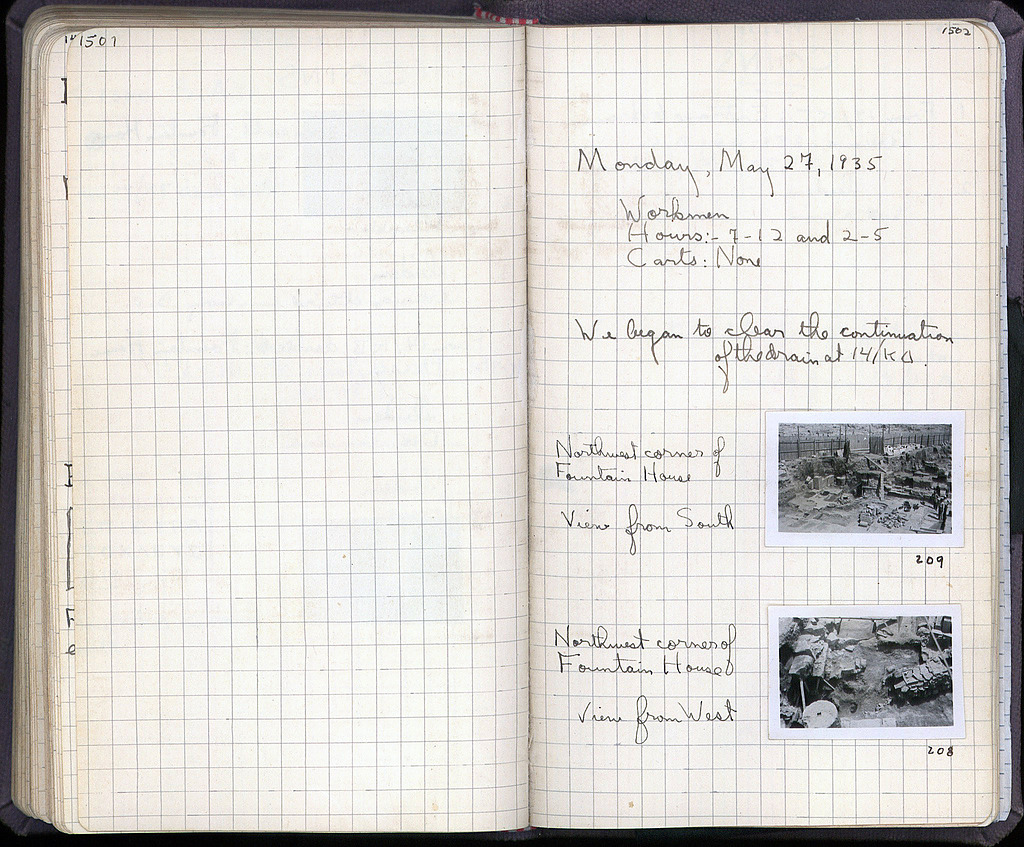 1501
1502
Monday, May 27, 1935
Workmen
Hours:- 7-12 and 2-5
Carts: None
We began to clear the continuation
of the drain at 14/ΚΔ.
Northwest corner of
Fountain House
View from South
209
Northwest corner of
Fountain House
View from West
208